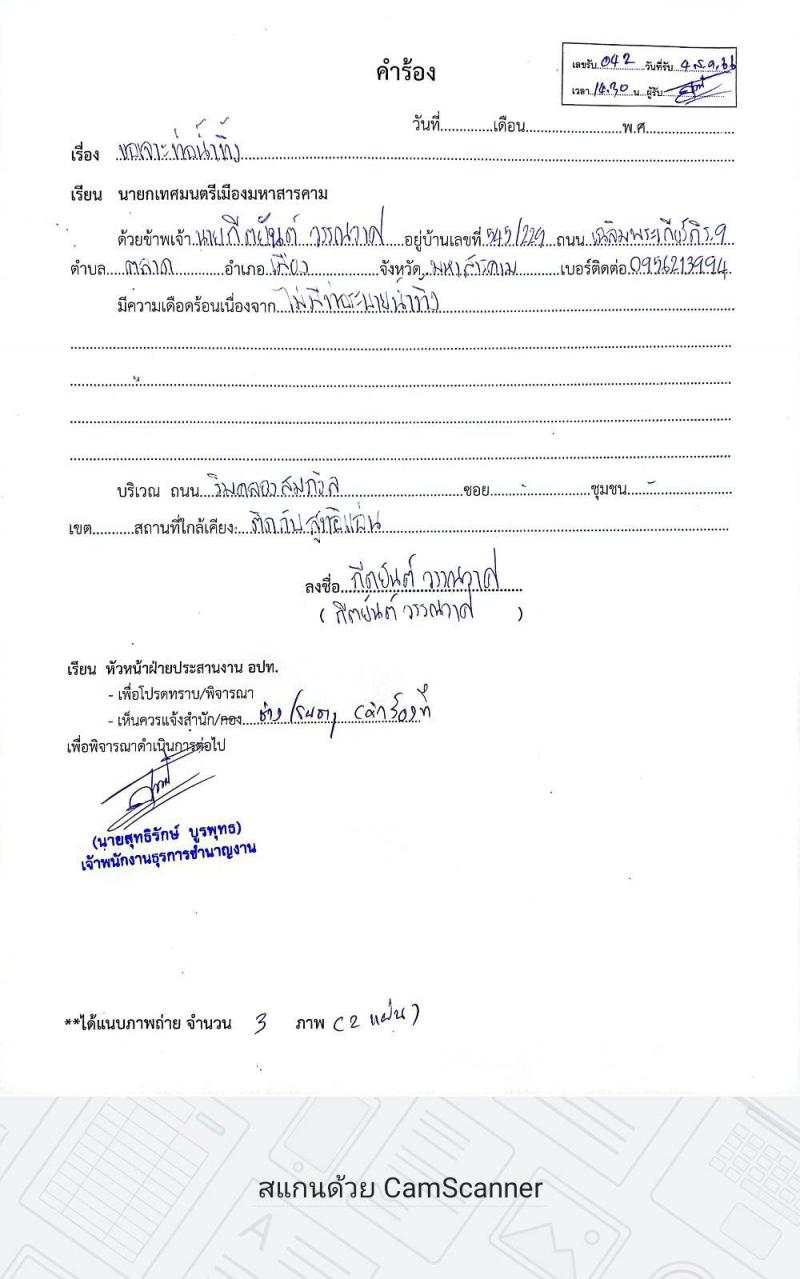 คำร้อง
เลขรับ 042 วันที่รับ 4 ธ.ค. 66
เวลา 14.30 น. ผู้รับ
วันที่..............เดือน..........................พ.ศ........................
เรื่อง ขอเจาะท่อน้ำทิ้ง
เรียน นายกเทศมนตรีเมืองมหาสารคาม
ด้วยข้าพเจ้า นายกีตยันต์ วรรณวาศ อยู่บ้านเลขที่ 545/229 ถนน เฉลิมพระเกียรติ ร.9
ตำบล ตลาด อำเภอ เมือง จังหวัด มหาสารคาม เบอร์ติดต่อ 0956213994
มีความเดือดร้อนเนื่องจาก ไม่มีท่อระบายน้ำทิ้ง
บริเวณ ถนน ริมคลองสมถวิล ซอย - ชุมชน -
เขต...........สถานที่ใกล้เคียง: ติดกับสุทธิแอ่น
ลงชื่อ กีตยันต์ วรรณวาศ
( กีตยันต์ วรรณวาศ )
เรียน หัวหน้าฝ่ายประสานงาน อปท.
- เพื่อโปรดทราบ/พิจารณา
- เห็นควรแจ้งสำนัก/กอง ช่าง
เพื่อพิจารณาดำเนินการต่อไป
(นายสุทธิรักษ์ บูรพุทธ)
เจ้าพนักงานธุรการชำนาญงาน
**ได้แนบภาพถ่าย จำนวน 3 ภาพ (2 แผ่น)
สแกนด้วย CamScanner